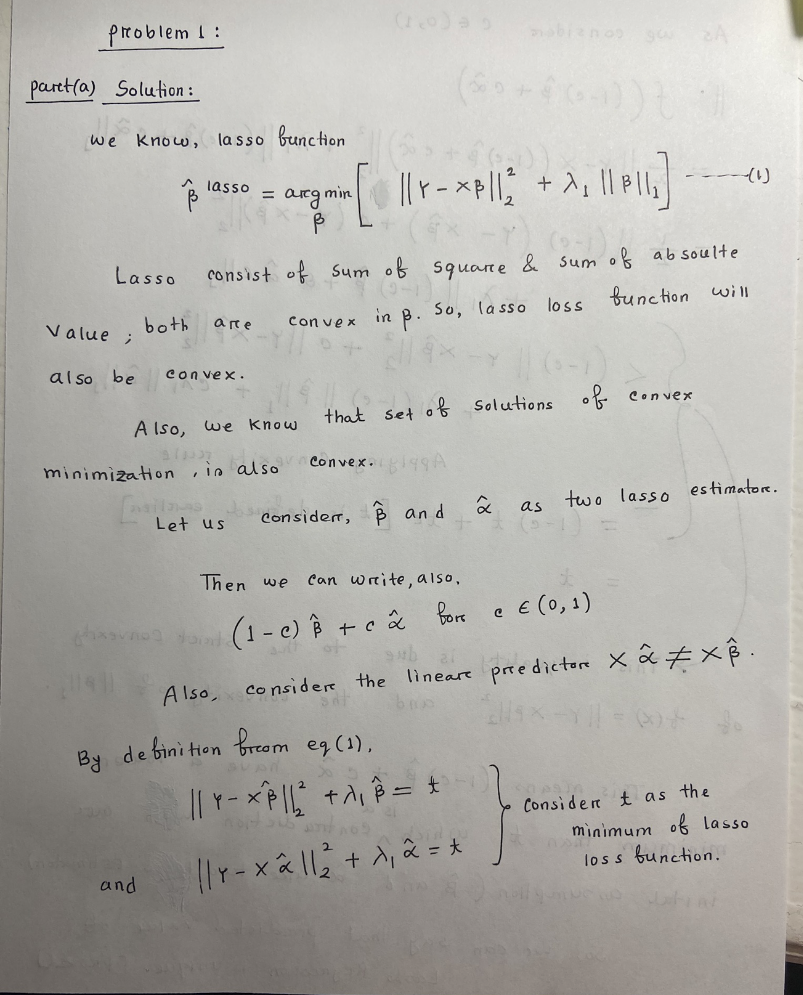 Problem 1:
Part(a) Solution:
We know, lasso function
β̂ lasso = arg min β [ ||Y - Xβ||₂² + λ₁ ||β||₁ ] -----(1)
Lasso consist of sum of square & sum of absoulte
Value ; both are convex in β. So, lasso loss function will
also be convex.
Also, we know that set of solutions of convex
minimization, is also convex.
Let us consider, β̂ and α̂ as two lasso estimator.
Then we can write, also,
(1-c) β̂ + c α̂ for c ∈ (0,1)
Also, consider the linear predictor X α̂ ≠ X β̂.
By definition from eq(1),
||Y - Xβ̂||₂² + λ₁ β̂ = t
and ||Y - X α̂||₂² + λ₁ α̂ = t
} Consider t as the
minimum of lasso
loss function.